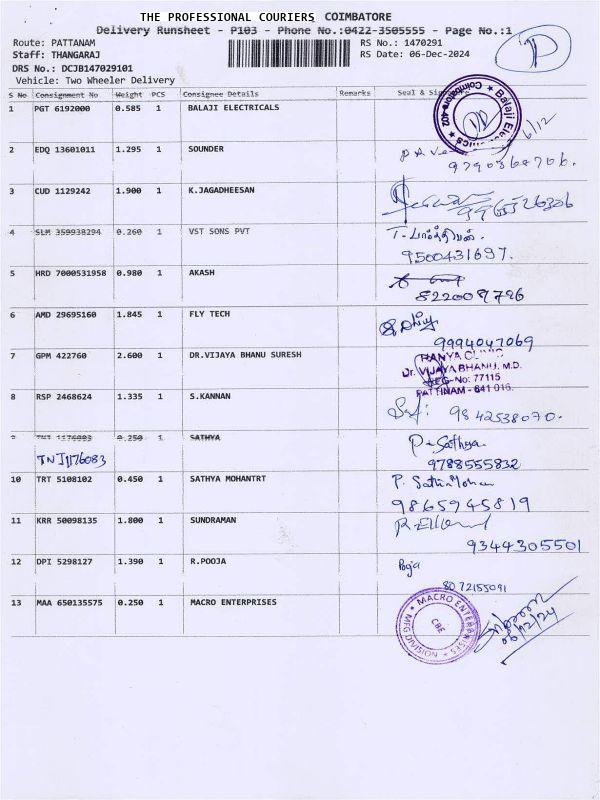 THE PROFESSIONAL COURIERS, COIMBATORE
Delivery Runsheet - P103 - Phone No.:0422-3505555 - Page No.:1
Route: PATTANAM
Staff: THANGARAJ
DRS No.: DCJB147029101
Vehicle: Two Wheeler Delivery
RS No.: 1470291
RS Date: 06-Dec-2024
D
S No Consignment No Weight PCS Consignee Details Remarks Seal &
1 PGT 6192000 0.585 1 BALAJI ELECTRICALS
2 EDQ 13601011 1.295 1 SOUNDER
3 CUD 1129242 1.900 1 K.JAGADHEESAN
4 SLM 359938294 0.260 1 VST SONS PVT
9500431697.
5 HRD 7000531958 0.980 1 AKASH
6 AMD 29695160 1.845 1 FLY TECH
9994047069
7 GPM 422760 2.600 1 DR.VIJAYA BHANU SURESH
RANYA CLINIC
Dr. VIJAYA BHANU, M.D.
REG-No: 77115
PATTINAM - 641 016.
8 RSP 2468624 1.335 1 S.KANNAN
9842538070.
9 TNT 1176083 0.250 1 SATHYA
TNJ1176083
P. Sathya
9788555832
10 TRT 5108102 0.450 1 SATHYA MOHANTRT
P. Sathia Mohan
9865945819
11 KRR 50098135 1.800 1 SUNDRAMAN
9344305501
12 DPI 5298127 1.390 1 R.POOJA
Poja
8072155091
13 MAA 650135575 0.250 1 MACRO ENTERPRISES
MACRO ENTERPRISES
MFG DIVISION
CBE
06/12/24